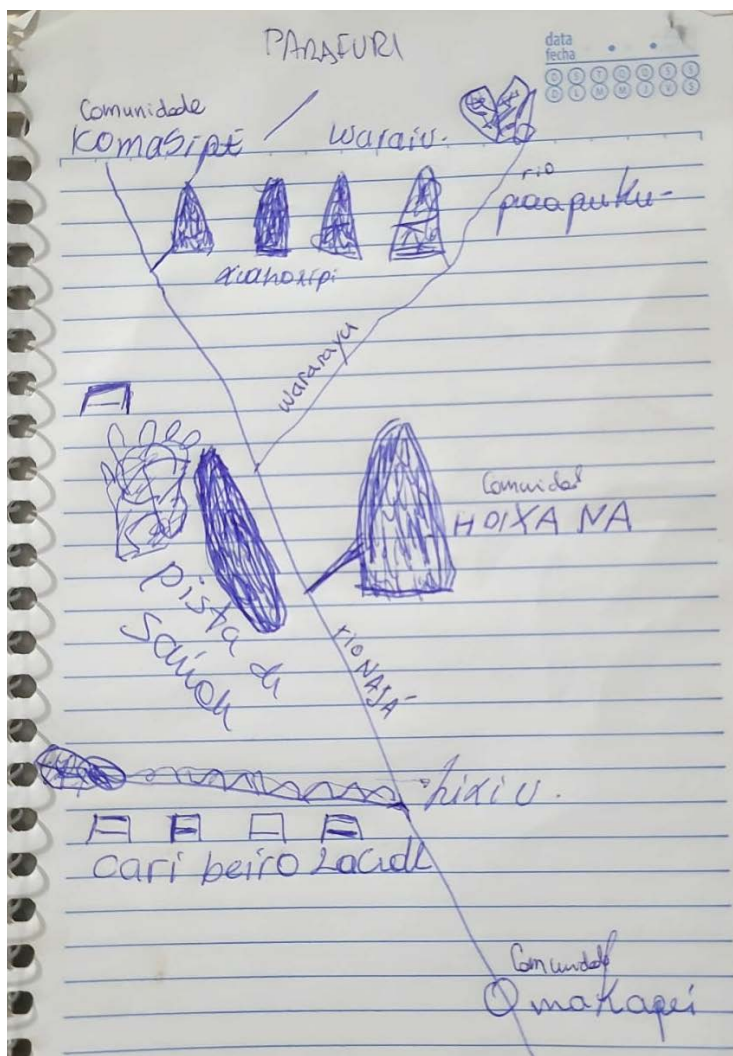 PARAFURI
data
fecha
D S T Q Q S S
D L M M J V S
Comunidade
KOMASIPE / Waraiu.
rio
paapuku-
xuanoxipi
Wararayu
Comunidad
HOIXA NA
pista de
rio NAJÁ
hixiu.
cari beiro
Comunidade
Omakapei